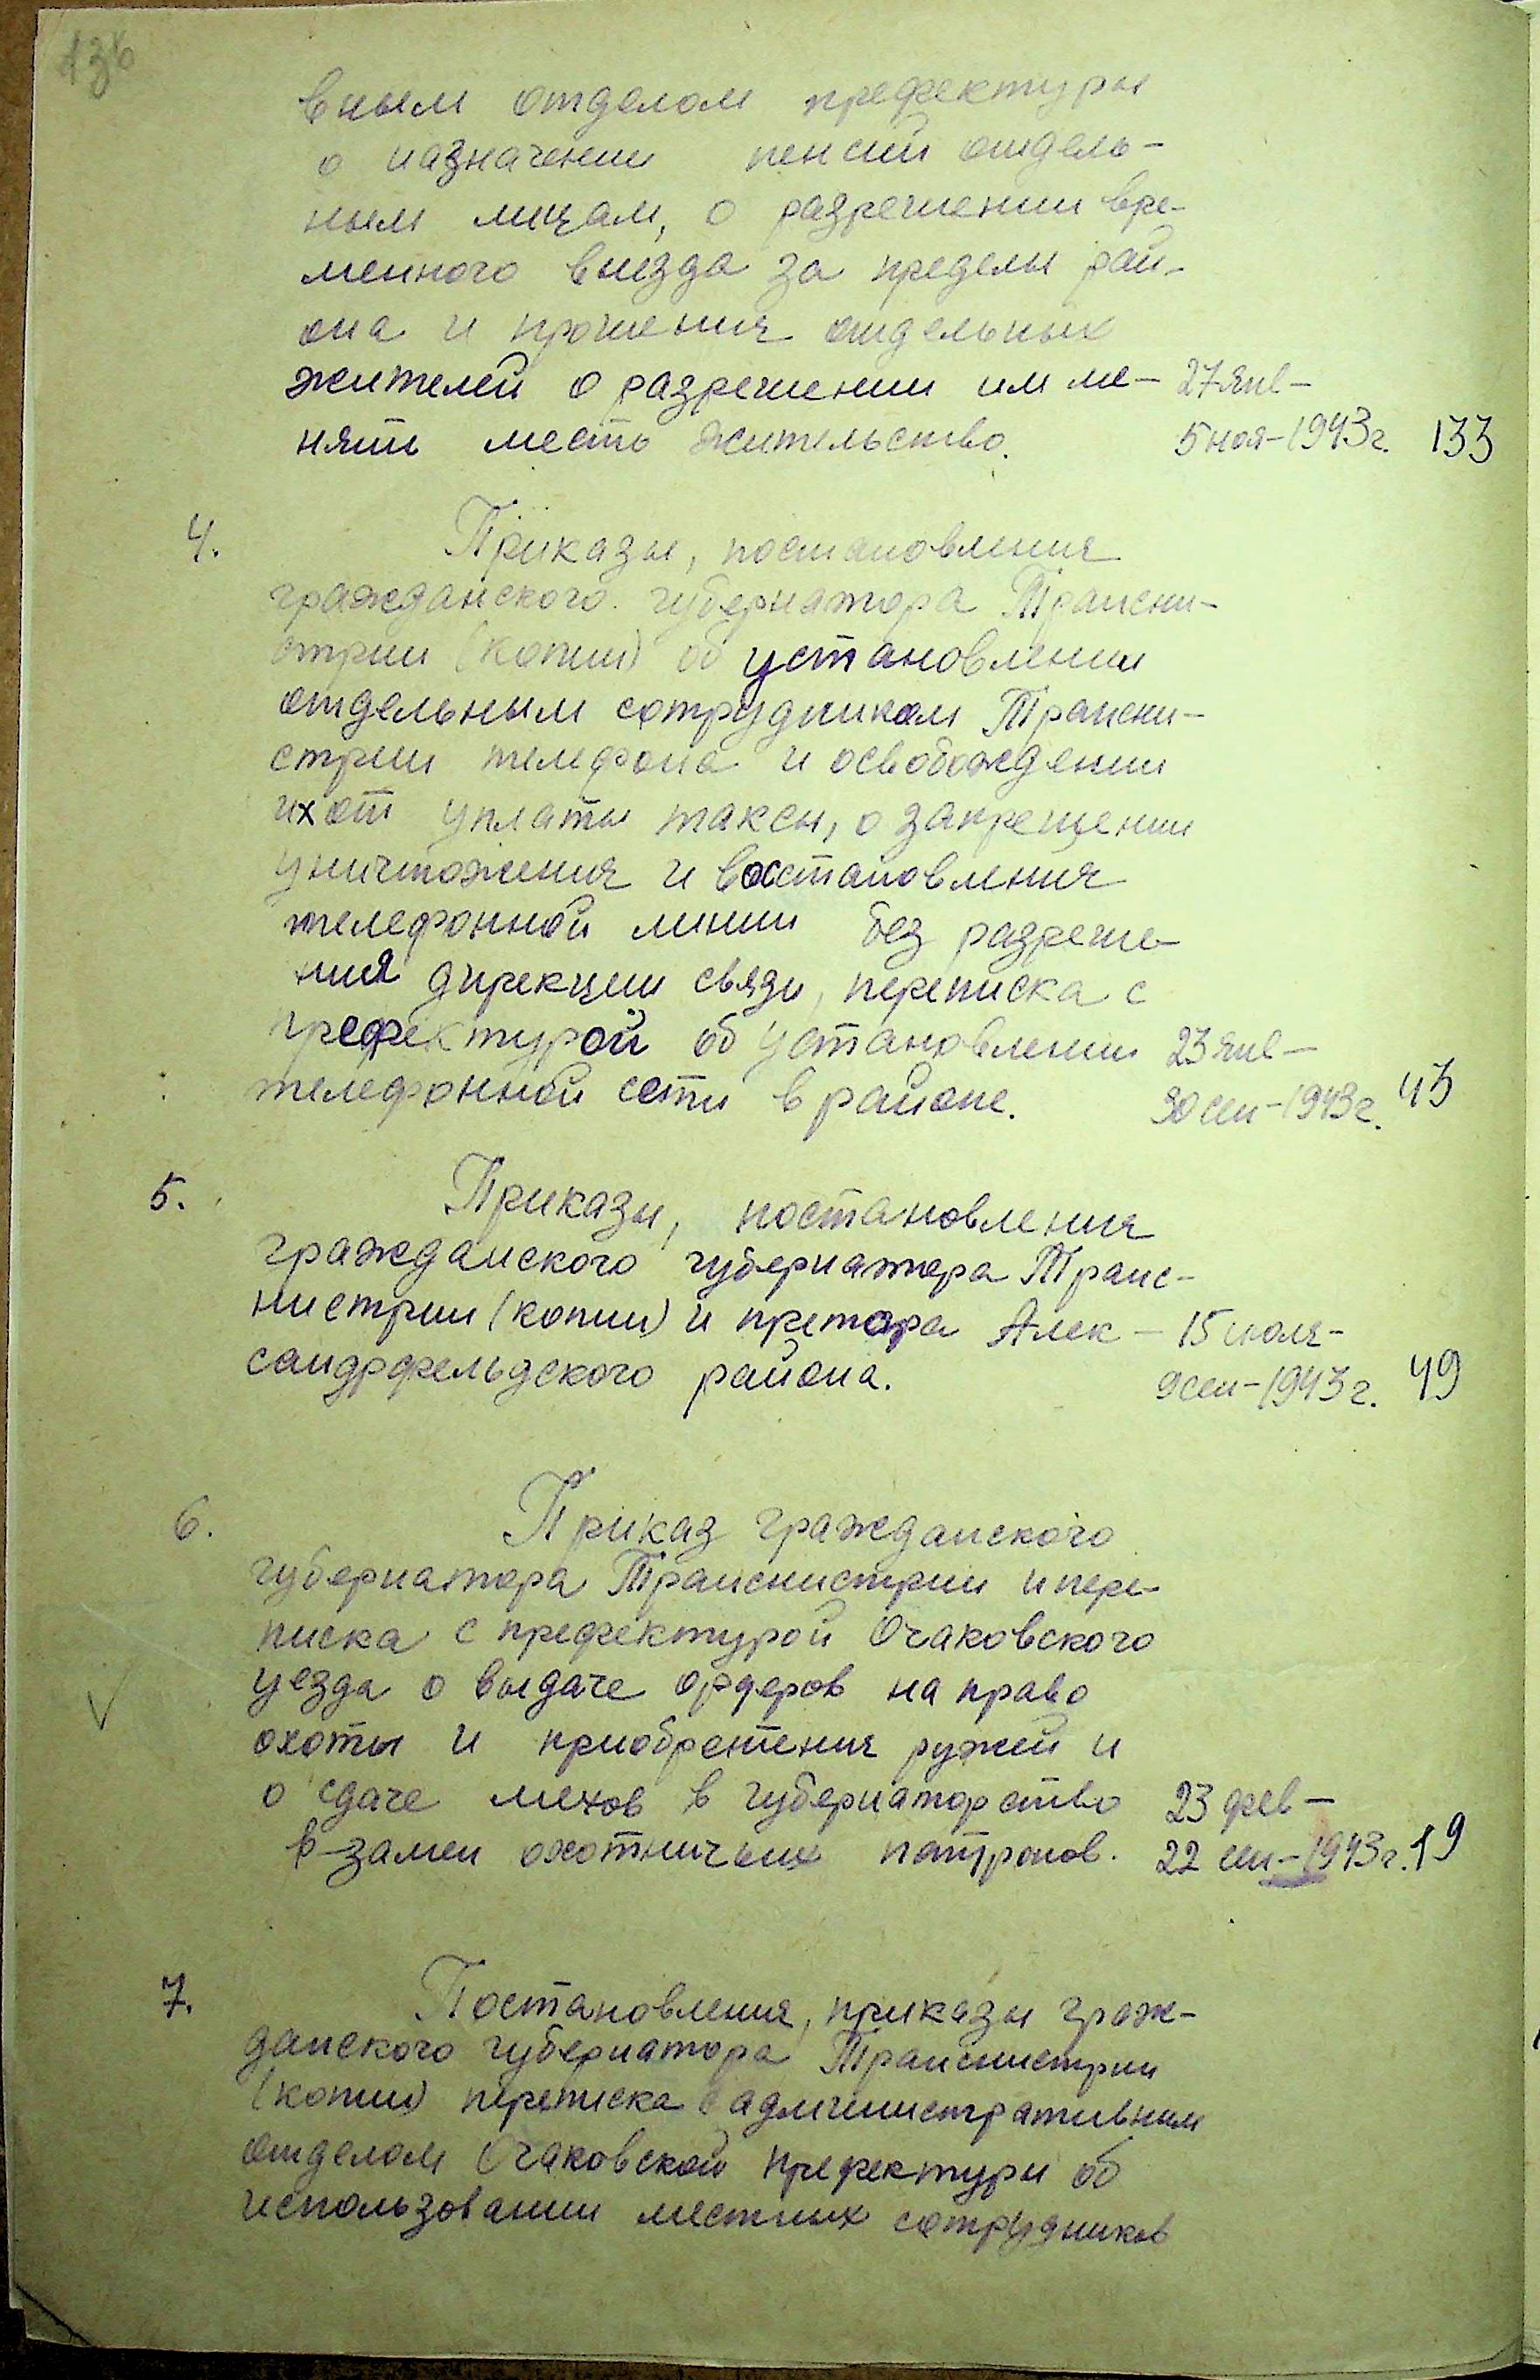 вным отделом префектуры
о назначении пенсий отдель-
ным лицам, о разрешении вре-
менного выезда за пределы рай-
она и прошения отдельных
жителей о разрешении им ме- 27 янв-
нять место жительство. 5 ноя-1943г. 133
4. Приказы, постановления
гражданского губернатора Трансни-
стрии (копии) об установлении
отдельным сотрудникам Трансни-
стрии телефона и освобождении
их от уплаты таксы, о запрещении
уничтожения и восстановления
телефонной линии без разреше-
ния дирекции связи, переписка с
префектурой об установлении 23 янв-
телефонной сети в районе. 30 сен-1943г. 43
5. Приказы, постановления
гражданского губернатора Транс-
нистрии (копии) и претора Алек- 15 июля-
сандрфельдского района. 9 сен-1943г. 49
6. Приказ гражданского
губернатора Транснистрии и пере-
писка с префектурой Очаковского
уезда о выдаче ордеров на право
охоты и приобретения ружей и
о сдаче мехов в губернаторство 23 фев-
в-замен охотничьих патронов. 22 сен-1943г. 19
7. Постановления, приказы граж-
данского губернатора Транснистрии
(копии) переписка с административным
отделом Очаковской префектуры об
использовании местных сотрудников